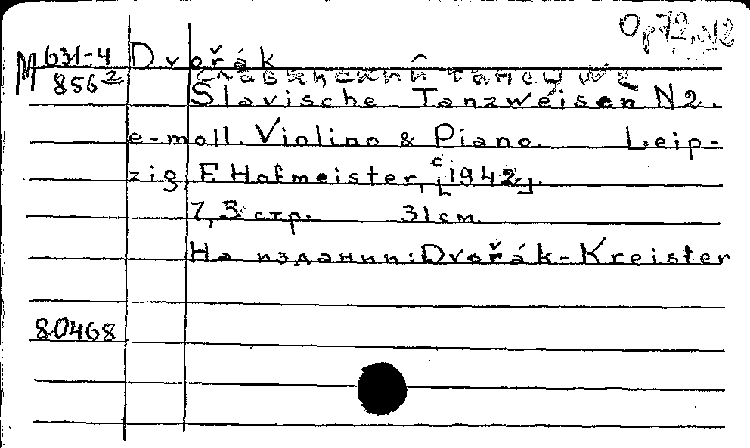 Op 72, N2
M 631-4
856 2
Dvořák
Славянский танец № 2
Slavische Tanzweisen N2.
e-moll. Violino & Piano. Leip-
zig, F. Hofmeister, [1942].
7, 3 стр. 31 см.
На издании: Dvořák-Kreisler
80468